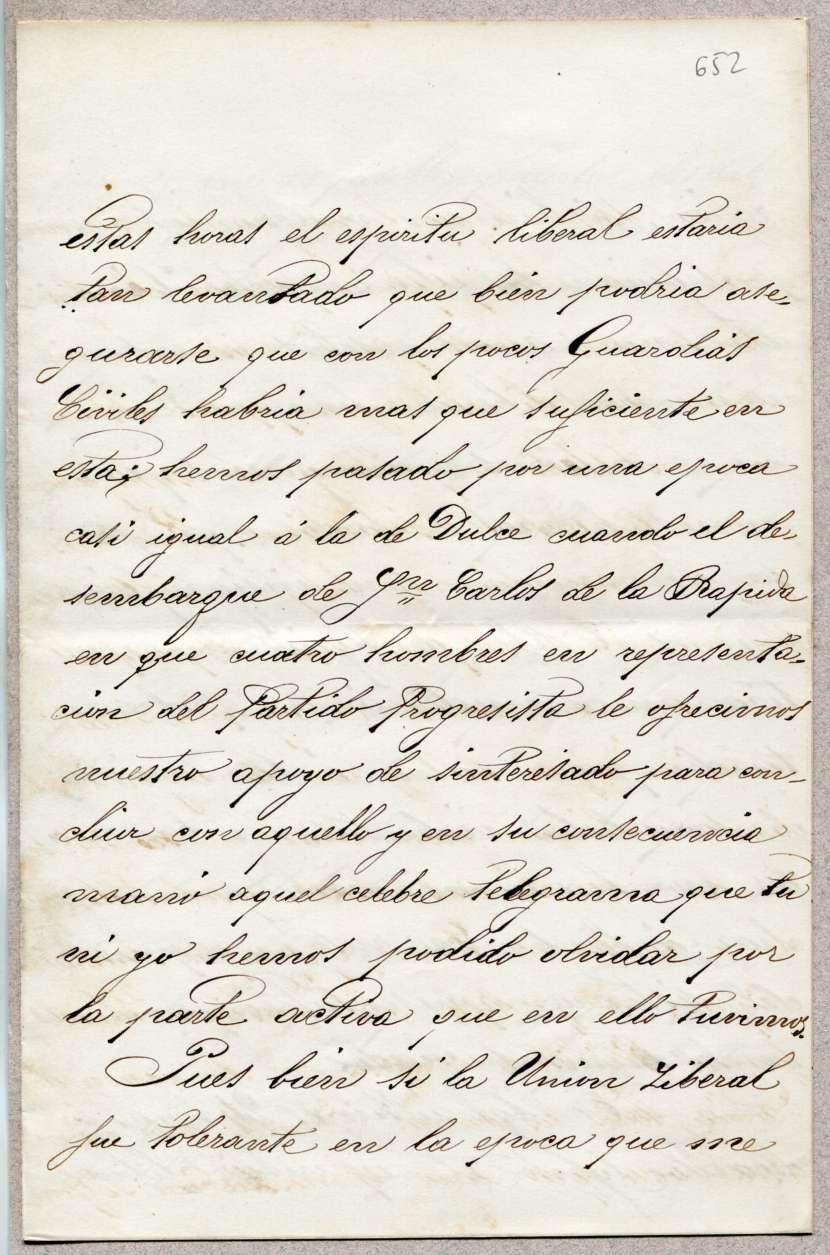 652
estas horas el espiritu liberal estaria
tan levantado que bien podria ase-
gurarse que con los pocos Guardias
Civiles habria mas que suficiente en
esta; hemos pasado por una epoca
casi igual á la de Dulce cuando el de-
sembarque de Dn Carlos de la Rapida
en que cuatro hombres en representa-
cion del Partido Progresista le ofrecimos
nuestro apoyo de sinteresado para con-
cluir con aquello y en su consecuencia
manó aquel celebre telegrama que tu
ni yo hemos podido olvidar por
la parte activa que en ello tuvimos.
Pues bien si la Union Liberal
fue tolerante en la epoca que me